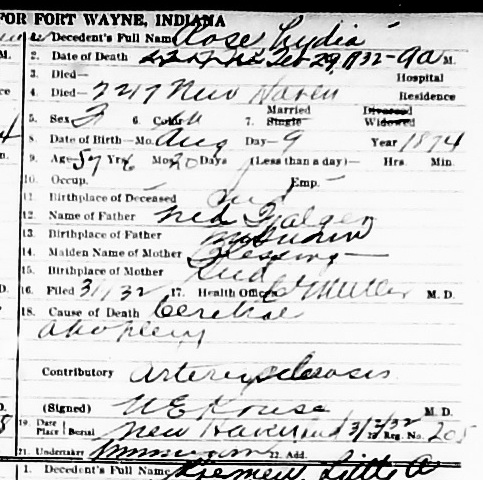 FOR FORT WAYNE, INDIANA
1. Decedent's Full Name Rose Lydia
2. Date of Death Feb 29, 1932-9a M.
3. Died— Hospital
4. Died— 2217 New Haven Residence
5. Sex F 6. Color W 7. Married Single Divorced Widowed
8. Date of Birth—Mo. Aug Day— 9 Year 1874
9. Age 57 Yrs 6 Mos 20 Days (Less than a day)— Hrs. Min.
10. Occup. Emp.
11. Birthplace of Deceased Ind
12. Name of Father Ned
13. Birthplace of Father
14. Maiden Name of Mother Blessing
15. Birthplace of Mother Ind
16. Filed 3/1/32 17. Health Officer M. D.
18. Cause of Death Cerebral
apoplexy
Contributory Arteriosclerosis
(Signed) M. D.
19. Date Place Burial New Haven Ind 3/2/32 20 Reg. No. 205
21. Undertaker 22. Add.
1. Decedent's Full Name A